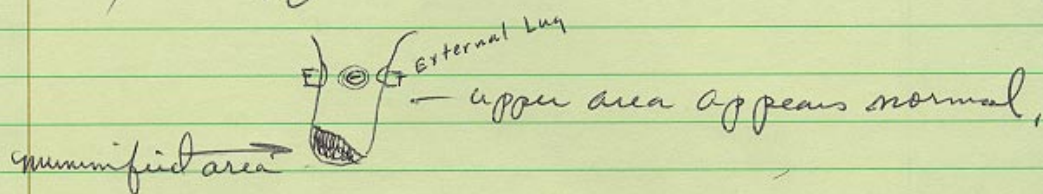 External Lug
— upper area appears normal,
mummified area